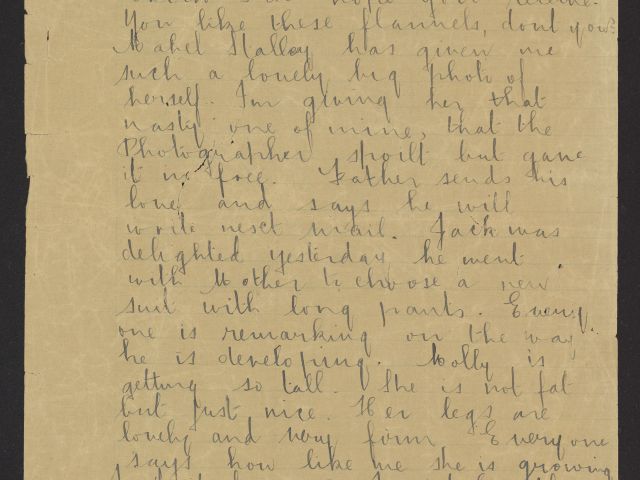 You like these flannels, dont you?
Mabel Halley has given me
such a lovely big photo of
herself. I'm giving her that
nasty one of mine, that the
Photographer spoilt but gave
it me free. Father sends his
love and says he will
write next mail. Jack was
delighted yesterday he went
with Mother to choose a new
suit with long pants. Every
one is remarking on the way
he is developing. Molly is
getting so tall. She is not fat
but just nice. Her legs are
lovely and very firm. Everyone
says how like me she is growing